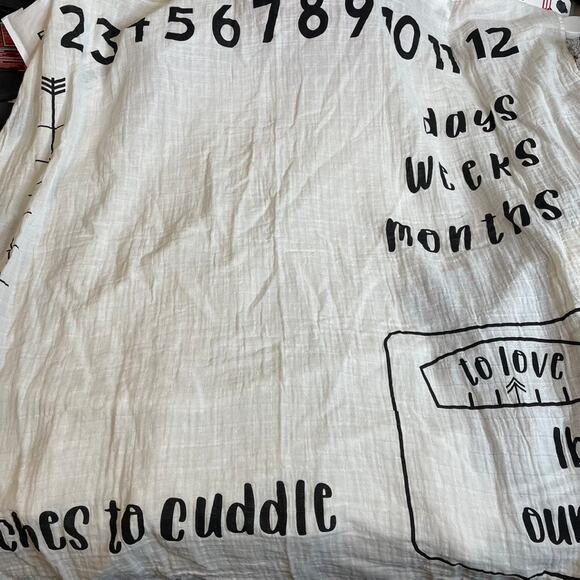 2 3 4 5 6 7 8 9 10 11 12
days
weeks
months
to love
lb
our
ches to cuddle